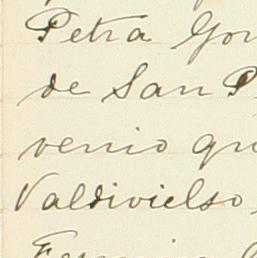 Petra Gon
de San P
venio qu
Valdivielso,